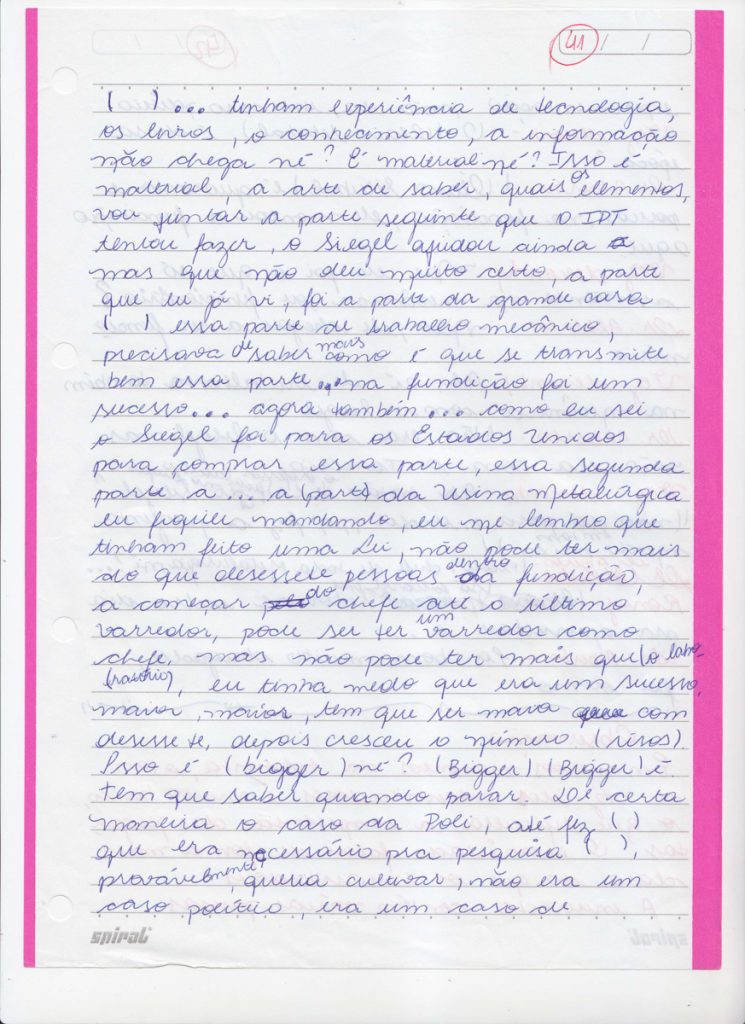 41 / /
( )... tinham experiência de tecnologia,
os livros, o conhecimento, a informação
não chega né? É material né? Isso é
material, a arte de saber, quais os elementos,
vou juntar a parte seguinte que o IPT
tentou fazer, o Siegel ajudou ainda
mas que não deu muito certo, a parte
que eu já vi, foi a parte da grande casa
( ) essa parte de trabalho mecânico,
precisava de saber mais como é que se transmite
bem essa parte... na fundição foi um
sucesso... agora também... como eu sei
o Siegel foi para os Estados Unidos
para comprar essa parte, essa segunda
parte a... a (parte) da Usina Metalúrgica
eu fiquei mandando, eu me lembro que
tinham feito uma Lei, não pode ter mais
do que desessete pessoas dentro da fundição,
a começar do chefe até o último
varredor, pode ser ter um varredor como
chefe, mas não pode ter mais que (o labo-
(ratório), eu tinha medo que era um sucesso,
maior, maior, tem que ser com
desessete, depois cresceu o número (risos).
Isso é (bigger) né? (Bigger) (Bigger) é.
Tem que saber quando parar. De certa
maneira o caso da Poli, até fez ( )
que era necessário pra pesquisa ( ),
provávelmente, queria cultivar, não era um
caso político, era um caso de
spiral